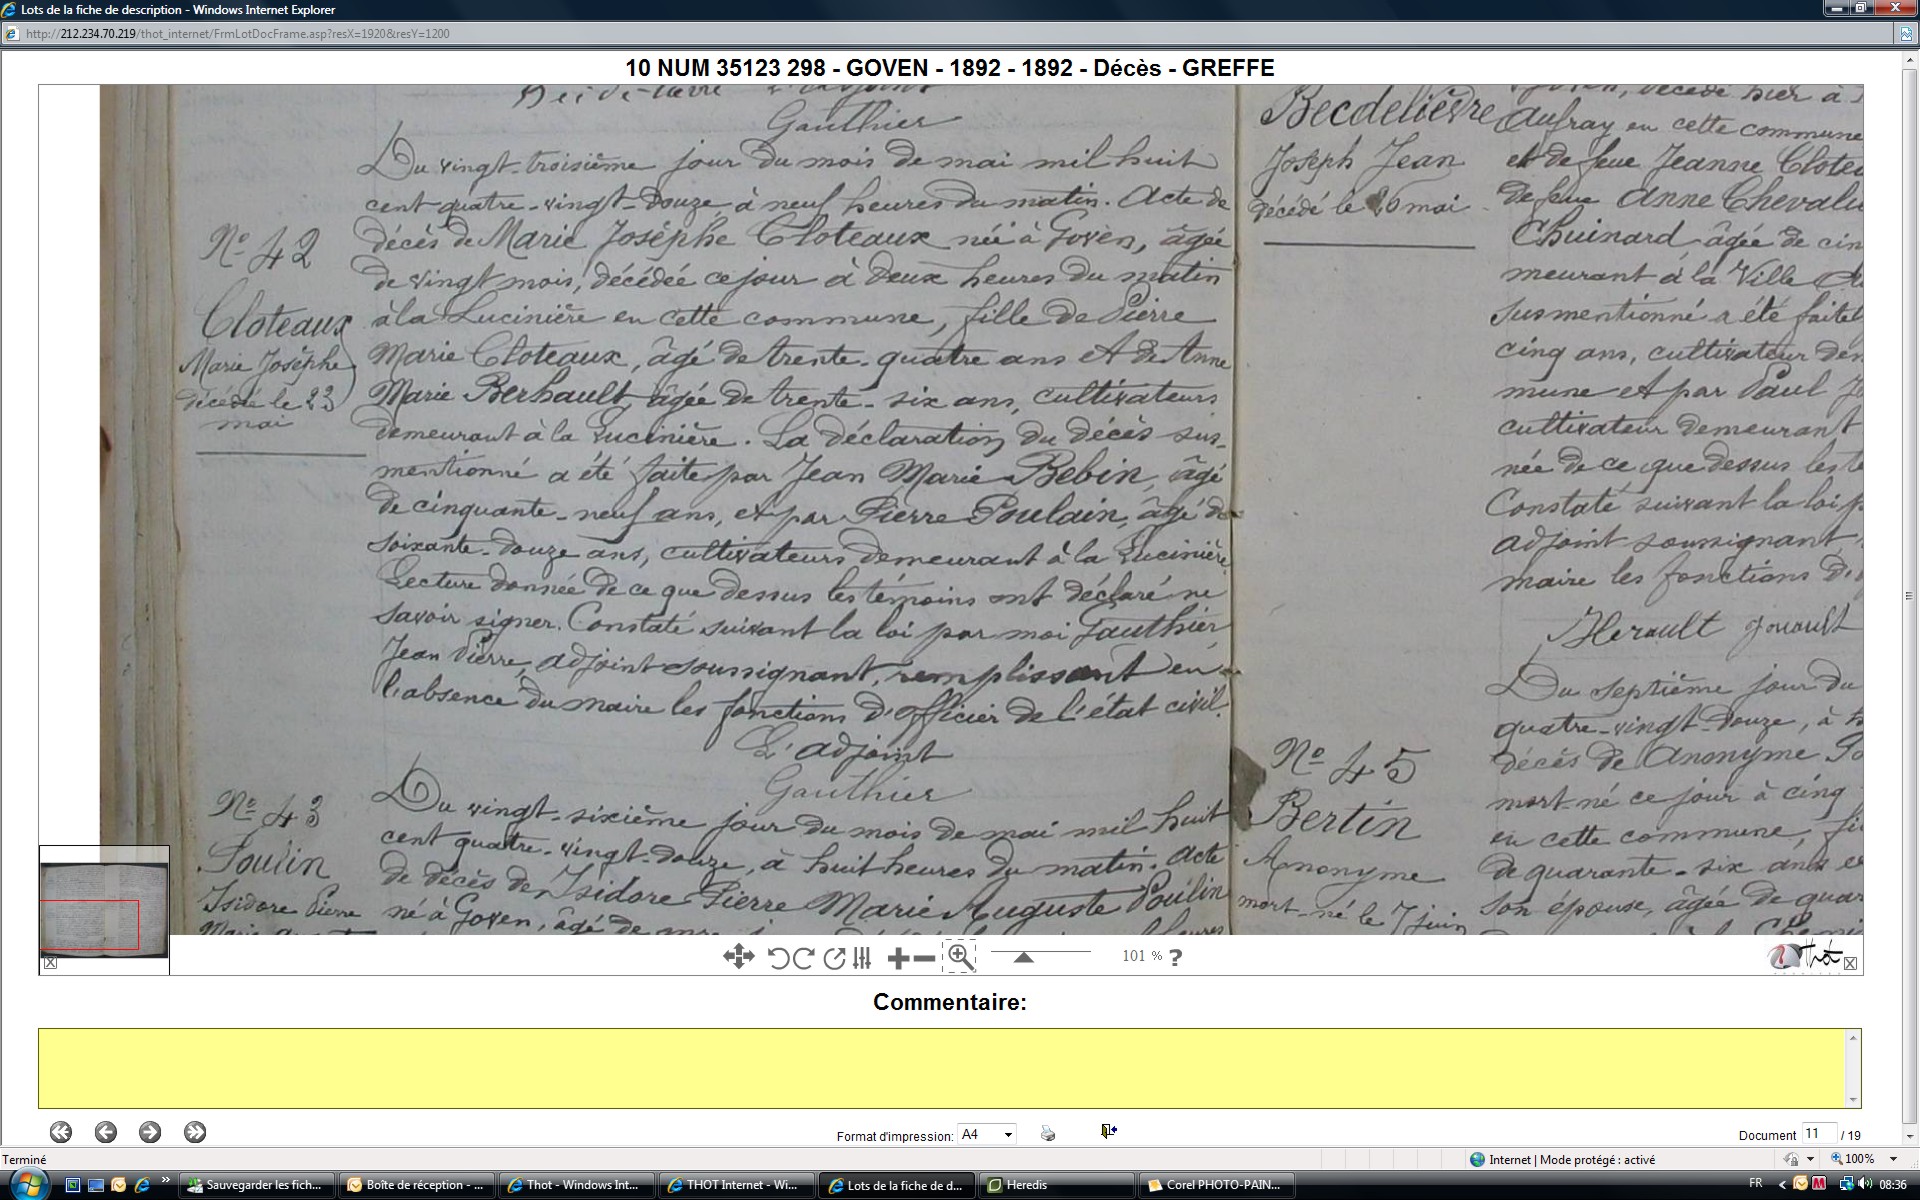 Lots de la fiche de description - Windows Internet Explorer
http://212.234.70.219/thot_internet/FrmLotDocFrame.asp?resX=1920&resY=1200
10 NUM 35123 298 - GOVEN - 1892 - 1892 - Décès - GREFFE
Gauthier
Du vingt-troisième jour du mois de mai mil huit
cent quatre-vingt-douze à neuf heures du matin. Acte de
décès de Marie Josèphe Cloteaux née à Goven, âgée
de vingt mois, décédée ce jour à deux heures du matin
à la Lucinière en cette commune, fille de Pierre
Marie Cloteaux, âgé de trente-quatre ans et de Anne
Marie Berhault, âgée de trente-six ans, cultivateurs
demeurant à la Lucinière. La déclaration du décès sus-
mentionné a été faite par Jean Marie Bebin, âgé
de cinquante-neuf ans, et par Pierre Poulain, âgé de
soixante-douze ans, cultivateurs demeurant à la Lucinière.
Lecture donnée de ce que dessus les témoins ont déclaré ne
savoir signer. Constaté suivant la loi par moi Gauthier
Jean Pierre, adjoint soussignant, remplissant en
l'absence du maire les fonctions d'officier de l'état civil.
L'adjoint
Gauthier
No 42
Cloteaux
Marie Josèphe
décédée le 23
mai
No 43
Poulin
Isidore Pierre
Du vingt-sixième jour du mois de mai mil huit
cent quatre-vingt-douze, à huit heures du matin. Acte
de décès de Isidore Pierre Marie Auguste Poulin
né à Goven, âgé de
Becdelièvre
Joseph Jean
décédé le 26 mai
décédé hier à
Aufray en cette commune
et de feue Jeanne Clote
de feue Anne Cheval
Chuinard âgée de cin
meurant à la Ville
susmentionné a été faite
cinq ans, cultivateur de
mune et par Paul
cultivateur demeurant
née de ce que dessus les té
Constaté suivant la loi p
adjoint soussignant,
maire les fonctions d'
Herault Jouault
No 45
Bertin
Anonyme
mort-né le 7 juin
Du septième jour du
quatre-vingt-douze, à
décès de Anonyme
mort né ce jour à cinq
en cette commune, fi
de quarante-six ans e
son épouse, âgée de quar
101 % ?
Thot
Commentaire:
Format d'impression: A4
Document 11 / 19
Terminé
Internet | Mode protégé : activé
100%
Sauvegarder les fich...
Boîte de réception - ...
Thot - Windows Int...
THOT Internet - Wi...
Lots de la fiche de d...
Heredis
Corel PHOTO-PAIN...
FR
08:36